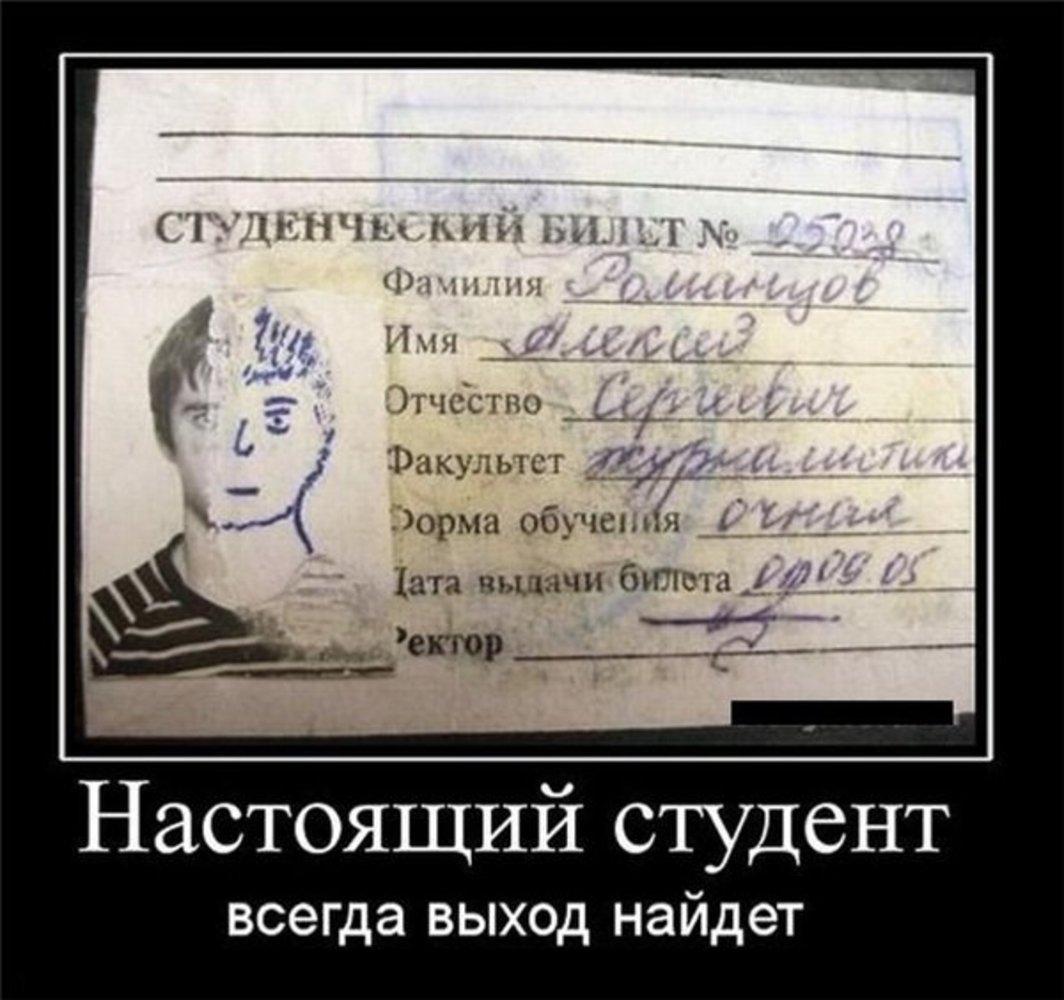 СТУДЕНЧЕСКИЙ БИЛЕТ № 25038
Фамилия Романцов
Имя Алексей
Отчество Сергеевич
Факультет журналистики
Форма обучения очная
Дата выдачи билета 01 09.05
Ректор
Настоящий студент
всегда выход найдет